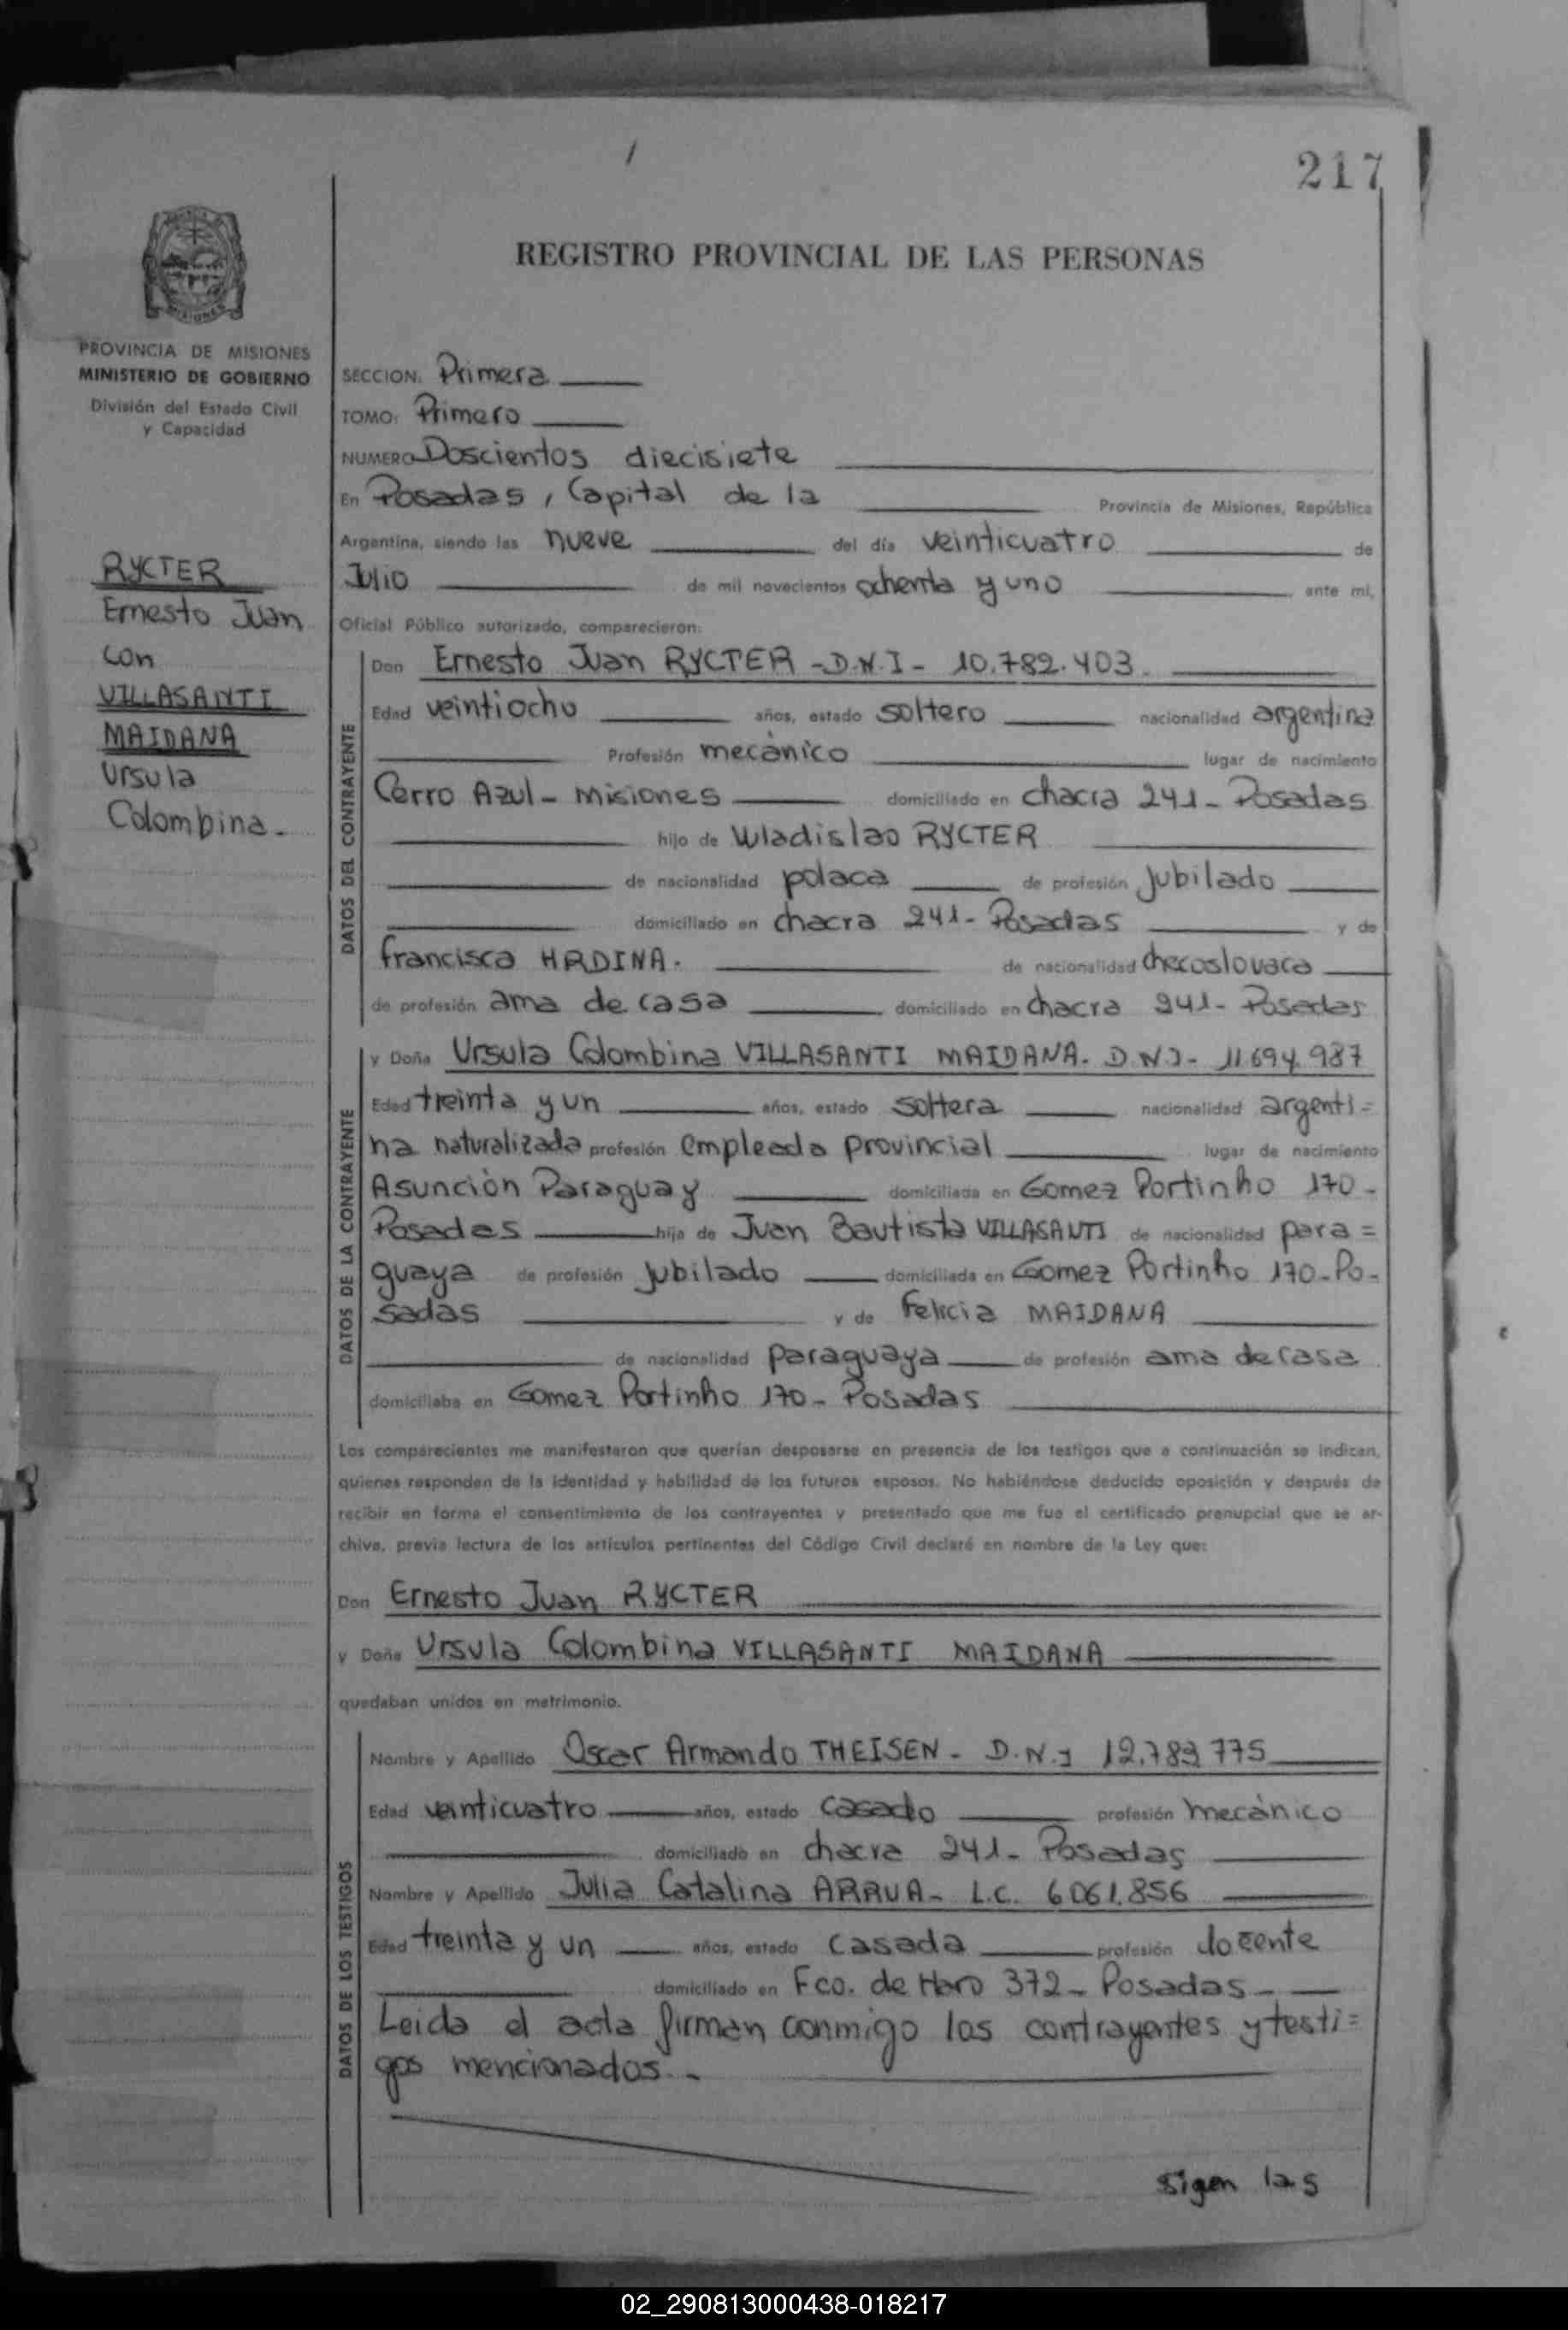 217
REGISTRO PROVINCIAL DE LAS PERSONAS
MISIONES
PROVINCIA DE MISIONES
MINISTERIO DE GOBIERNO
División del Estado Civil
y Capacidad
RYCTER
Ernesto Juan
con
VILLASANTI
MAIDANA
Ursula
Colombina.-
SECCION: Primera
TOMO: Primero
NUMERO Doscientos diecisiete
En Posadas, Capital de la Provincia de Misiones, República
Argentina, siendo las nueve del día veinticuatro de
Julio de mil novecientos ochenta y uno ante mi,
Oficial Público autorizado, comparecieron:
DATOS DEL CONTRAYENTE
Don Ernesto Juan RYCTER - D.N.I - 10.782.403.
Edad veintiocho años, estado soltero nacionalidad argentina
Profesión mecánico lugar de nacimiento
Cerro Azul - Misiones domiciliado en chacra 241 - Posadas
hijo de Wladislao RYCTER
de nacionalidad polaca de profesión jubilado
domiciliado en chacra 241 - Posadas y de
francisca HRDINA. de nacionalidad checoslovaca
de profesión ama de casa domiciliado en chacra 241 - Posadas
DATOS DE LA CONTRAYENTE
y Doña Ursula Colombina VILLASANTI MAIDANA. D.N.I - 11.694.987
Edad treinta y un años, estado soltera nacionalidad argenti=
na naturalizada profesión empleada provincial lugar de nacimiento
Asunción Paraguay domiciliada en Gomez Portinho 170 -
Posadas hija de Juan Bautista VILLASANTI de nacionalidad para=
guaya de profesión jubilado domiciliada en Gomez Portinho 170 - Po-
sadas y de Felicia MAIDANA
de nacionalidad paraguaya de profesión ama de casa
domiciliaba en Gomez Portinho 170 - Posadas
Los comparecientes me manifestaron que querían desposarse en presencia de los testigos que a continuación se indican,
quienes responden de la identidad y habilidad de los futuros esposos. No habiéndose deducido oposición y después de
recibir en forma el consentimiento de los contrayentes y presentado que me fue el certificado prenupcial que se ar-
chiva, previa lectura de los artículos pertinentes del Código Civil declaré en nombre de la Ley que:
Don Ernesto Juan RYCTER
y Doña Ursula Colombina VILLASANTI MAIDANA
quedaban unidos en matrimonio.
DATOS DE LOS TESTIGOS
Nombre y Apellido Oscar Armando THEISEN - D.N.I 12.783.775
Edad veinticuatro años, estado casado profesión mecánico
domiciliado en chacra 241 - Posadas
Nombre y Apellido Julia Catalina ARRUA - L.C. 6.061.856
Edad treinta y un años, estado casada profesión docente
domiciliado en Fco. de Haro 372 - Posadas -
Leida el acta firman conmigo los contrayentes y testi=
gos mencionados.-
sigen las
02_290813000438-018217